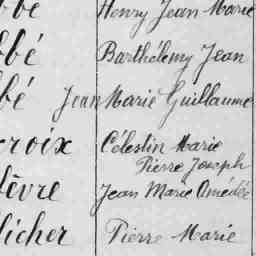 bé Henry Jean Marie
bé Barthélemy Jean
bé Jean Marie Guillaume
croix Célestin Marie
Pierre Joseph
fèvre Jean Marie Amédée
licher Pierre Marie